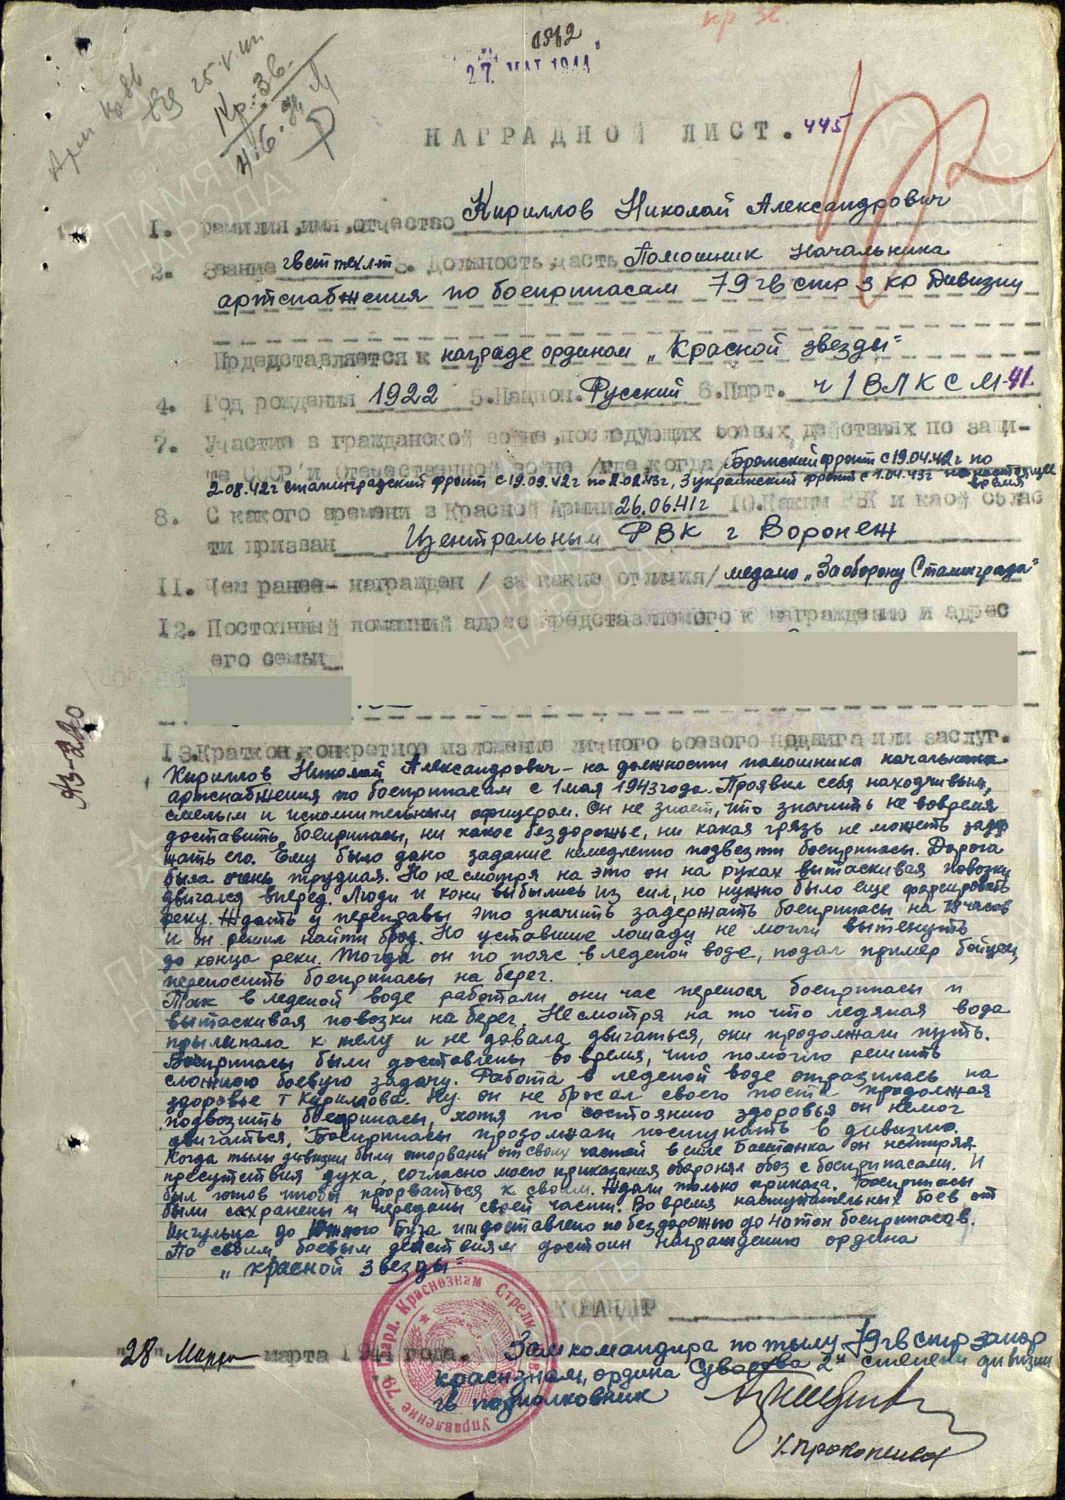 кр зв.
0562
27. МАЙ 1944
25.V.
Кр. Зв.
4.6.
НАГРАДНОЙ ЛИСТ. 445
1. Фамилия, имя, отчество Кириллов Николай Александрович
2. Звание гвст техл-т 3. Должность, часть Помошник Начальника
артснабжения по боеприпасам 79 гв стр з кр Дивизии
Представляется к награде ордином „Красной звезды"
4. Год рождения 1922 5. Национ. Русский 6. Парт. ч/ВЛКСМ-41.
7. Участие в гражданской войне, последующих боевых действиях по защи-
те СССР и отечественной войне /где, когда/ Брянский фронт с 19.04.42г по
2.08.42г Сталинградский фронт с 19.09.42г по 2.02.43г, 3 украинский фронт с 1.04.43г по настоящее
время
8. С какого времени в Красной Армии 26.06.41г 10. Каким РВК и какой облас
ти призван Центральным РВК г Воронеж
11. Чем ранее- награжден / за какие отличия/ медаль „За оборону Сталинграда"
12. Постоянный домашний адрес представляемого к награждению и адрес
его семьи
13. Краткое, конкретное изложение личного боевого подвига или заслуг.
Кириллов Николай Александрович - на должности помошника начальника
артснабжения по боеприпасам с 1 мая 1943 года. Проявил себя находчивым,
смелым и исполнительным офицером. Он не знает, что значить не вовремя
доставить боеприпасы, ни какое бездорожье, ни какая грязь не можеть задер
жать его. Ему было дано задание немедленно подвезти боеприпасы. Дорога
была очень трудная. Но не смотря на это он на руках вытаскивая повозки
двигался вперед. Люди и кони выбились из сил, но нужно было еще форсировать
реку. Ждать у переправы это значить задержать боеприпасы на часов
и он решил найти брод. Но уставшие лошади не могли вытенуть
до конца реки. Тогда он по пояс в леденой воде, подал пример бойцам,
переносить боеприпасы на берег.
Так в леденой воде работали они час перенося боеприпасы и
вытаскивая повозки на берег. Несмотря на то что ледяная вода
прылипала к телу и не давала двигаться, они продолжали путь.
Боеприпасы были доставлены во время, что помогло решить
сложною боевую задачу. Работа в леденой воде отразилась на
здоровье т Кириллова. Ну он не бросал своего поста продолжая
подвозить боеприпасы, хотя по состоянию здоровья он немог
двигаться. Боеприпасы продолжали поступать в дивизию.
Когда тылы дивизии были оторваны от своих частей в селе Баштанка он нетиряя
пресутствия духа, согласно моего приказания оборонял обоз с боеприпасами. И
был готов чтобы прорваться к своим. Ждали только приказа. Боеприпасы
были сахранены и переданы своей части. Во время наступательных боев от
Ингульца до Южного Буга им доставлено по бездорожью до тон боеприпасов.
По своим боевым действиям достоин награждению ордина
„красной звезды"
КОМАНДИР
"28" Марта марта 1944 года.
Зам командира по тылу 79 гв стр запор
краснзнам, ордина Суворова 2й степени дивизии
гв подполковник
/. Прокопенко
Управление 79 Гвард. Краснознам Стрелков
АЗ-220
ПАМЯТЬ НАРОДА